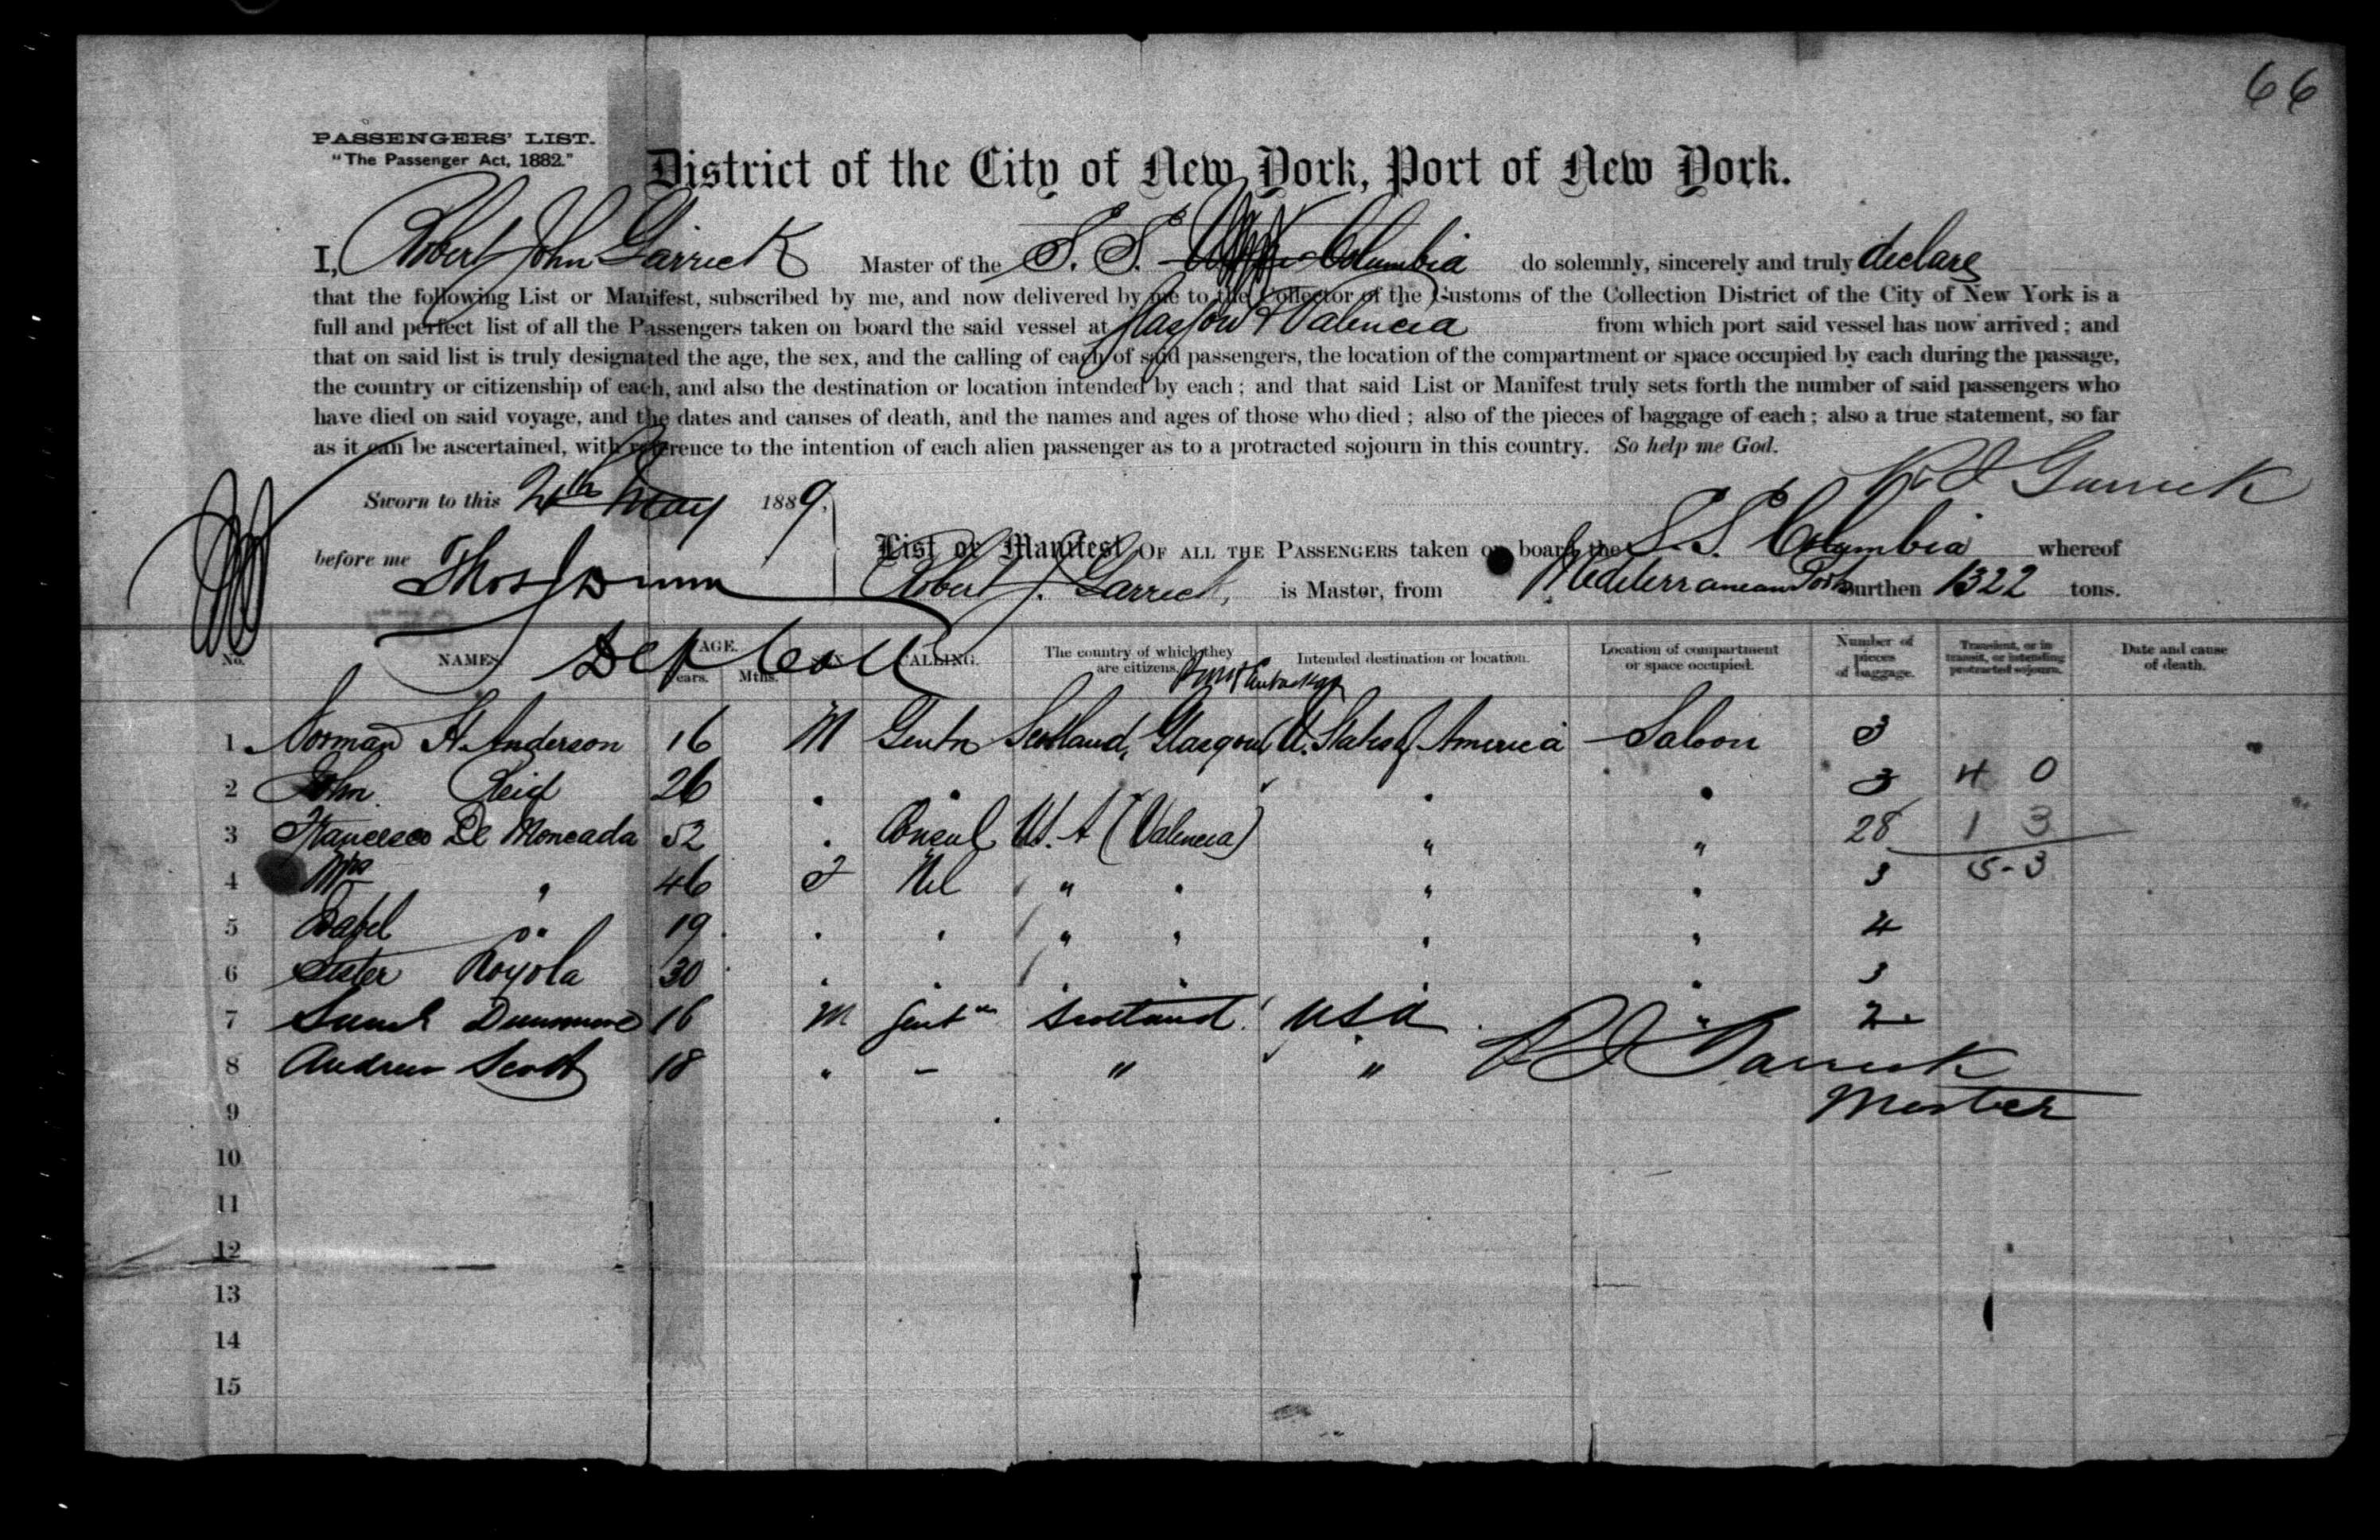 66
PASSENGERS' LIST.
"The Passenger Act, 1882."
District of the City of New York, Port of New York.
I, Robert John Garrick Master of the S. S. Columbia do solemnly, sincerely and truly declare
that the following List or Manifest, subscribed by me, and now delivered by me to the Collector of the Customs of the Collection District of the City of New York is a
full and perfect list of all the Passengers taken on board the said vessel at Glasgow & Valencia from which port said vessel has now arrived; and
that on said list is truly designated the age, the sex, and the calling of each of said passengers, the location of the compartment or space occupied by each during the passage,
the country or citizenship of each, and also the destination or location intended by each; and that said List or Manifest truly sets forth the number of said passengers who
have died on said voyage, and the dates and causes of death, and the names and ages of those who died; also of the pieces of baggage of each; also a true statement, so far
as it can be ascertained, with reference to the intention of each alien passenger as to a protracted sojourn in this country. So help me God.
R J Garrick
Sworn to this May 1889,
before me Thos
List or Manifest OF ALL THE PASSENGERS taken on board the S. S. Columbia whereof
Robert J. Garrick, is Master, from Mediterranean Ports burthen 1322 tons.
Dep Coll
No. NAMES AGE. Years. Mths. SEX CALLING. The country of which they are citizens. Intended destination or location. Location of compartment or space occupied. Number of pieces of baggage. Transient, or in transit, or intending protracted sojourn. Date and cause of death.
1 Norman H. Anderson 16 M Gentn Scotland, Glasgow U. States of America Saloon 3
2 John Reid 26 " " " " 3 4 0
3 Francesco De Moncada 52 " Consul U. S. A (Valencia) " " 28 1 3
4 Mrs " 46 F Nil " " " " 3 5-3
5 Isabel Do " 19 " " " " " " 4
6 Sister Royola 30 " " " " " 3
7 16 M Gentn Scotland USA " 2
8 Andrew Scott 18 " - " "
R J Garrick
Master
9
10
11
12
13
14
15